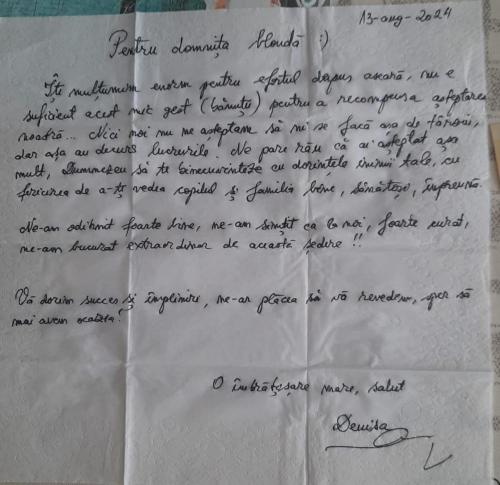 13-aug-2024
Pentru domnița blondă :)
Îți mulțumim enorm pentru efortul depus aseară, nu e
suficient acest mic gest (bănuțu) pentru a recompensa așteptarea
noastră... Nici noi nu ne așteptam să ni se facă așa de târziu,
dar așa au decurs lucrurile. Ne pare rău că ai așteptat așa
mult, Dumnezeu să te binecuvinteze cu dorințele inimii tale, cu
fericirea de a-ți vedea copilul și familia bine, sănătoși, împreună.
Ne-am odihnit foarte bine, ne-am simțit ca la noi, foarte curat,
ne-am bucurat extraordinar de această ședere !!
Vă dorim succes și împlinire, ne-ar plăcea să vă revedem, sper să
mai avem ocazia!
O îmbrățișare mare, salut
Denisa